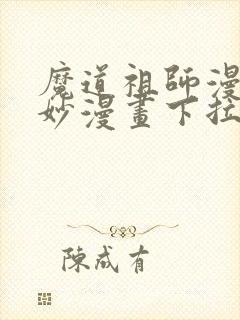 魔道祖師漫
妙漫畫下拉
陳成有